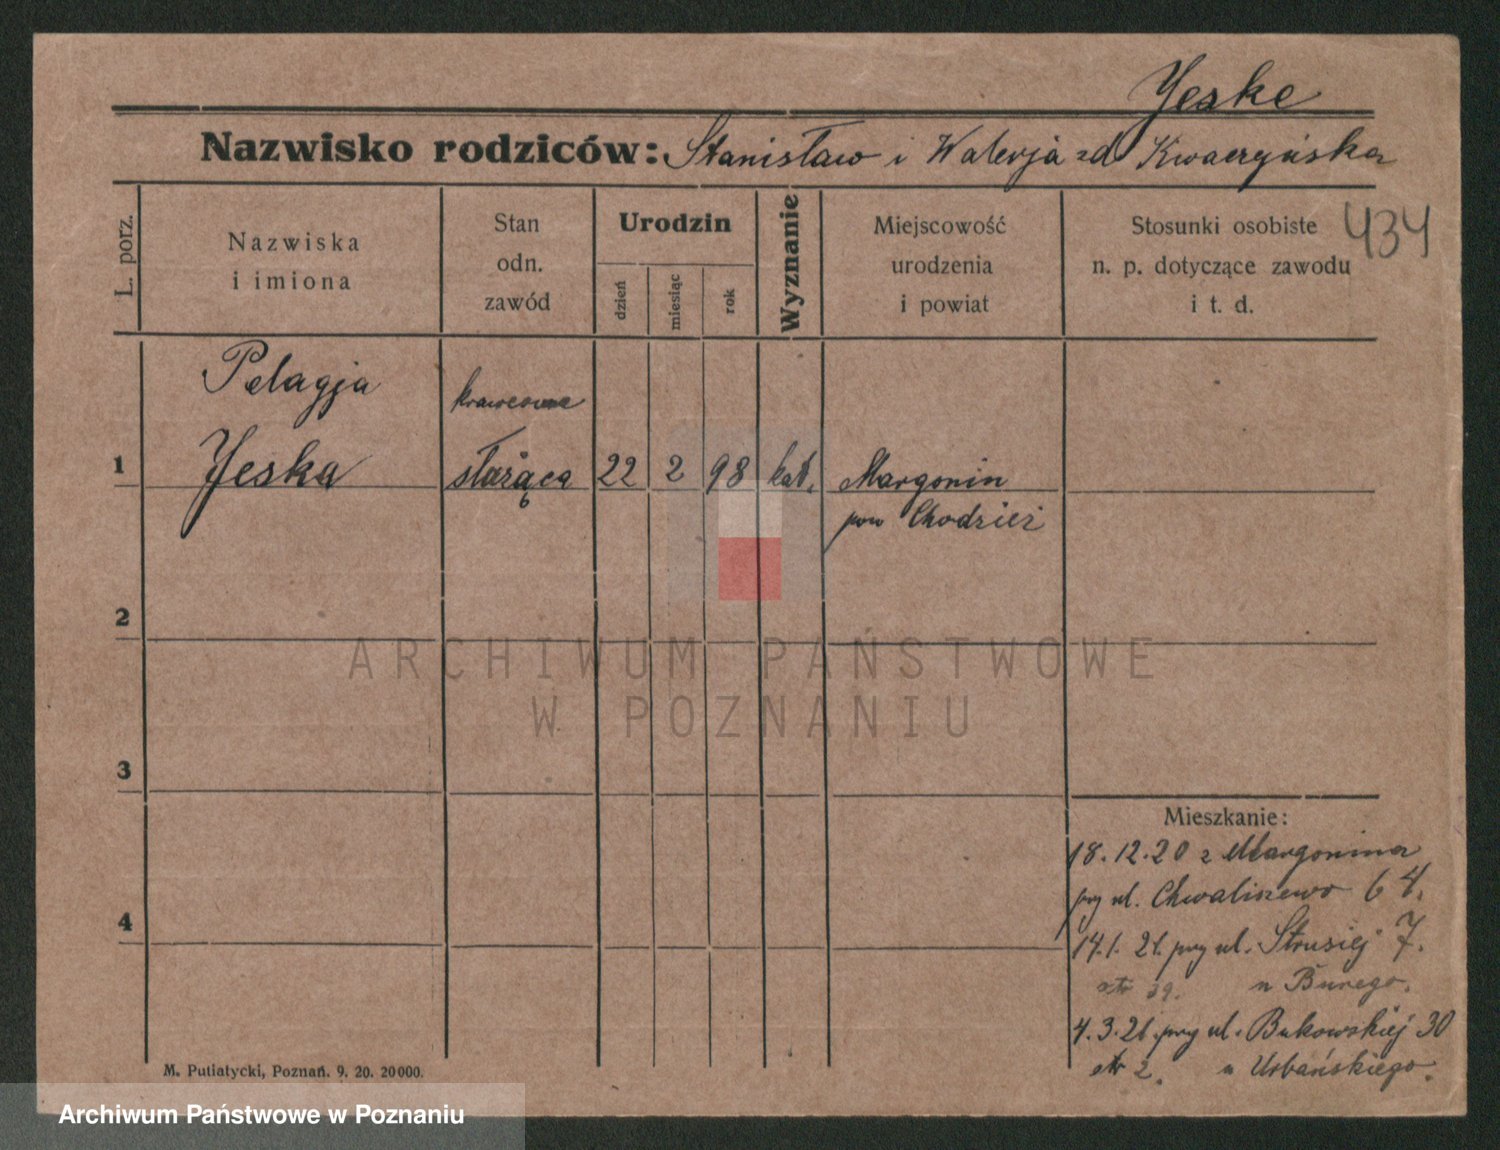 Yeske
Nazwisko rodziców: Stanisław i Walerja zd Kwaczyńska
L. porz.
Nazwiska
i imiona
Stan
odn.
zawód
Urodzin
dzień
miesiąc
rok
Wyznanie
Miejscowość
urodzenia
i powiat
Stosunki osobiste
n. p. dotyczące zawodu
i t. d.
434
Pelagja
krawcowa
1 Yeska służąca 22 2 98 kat. Margonin
pow Chodzież
2
ARCHIWUM PAŃSTWOWE
W POZNANIU
3
Mieszkanie:
18.12.20 z Margonina
przy ul. Chwaliszewo 64.
4
14.1.21. przy ul. Strusiej 7.
str 39. u Bunego.
4.3.21. przy ul. Bukowskiej 30
str 2. u Urbańskiego.
M. Putiatycki, Poznań. 9. 20. 20000.
Archiwum Państwowe w Poznaniu